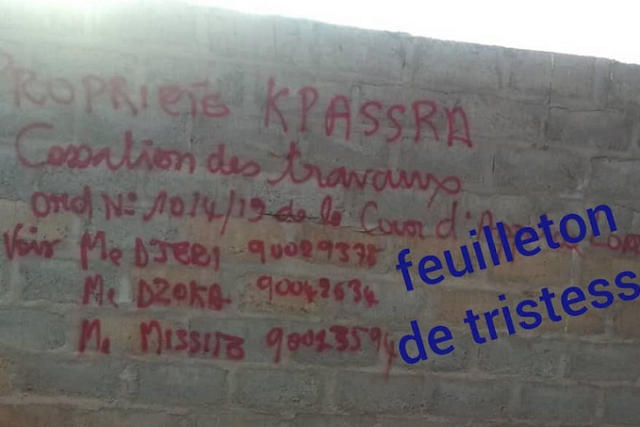 PROPRIETE KPASSRA
Cessation des travaux
Ord N° 1014/19 de la Cour d'
Voir Me DJERI 90029378
Me DZOKA 90042634
Me MISSITE 90013594
feuilleton
de tristess